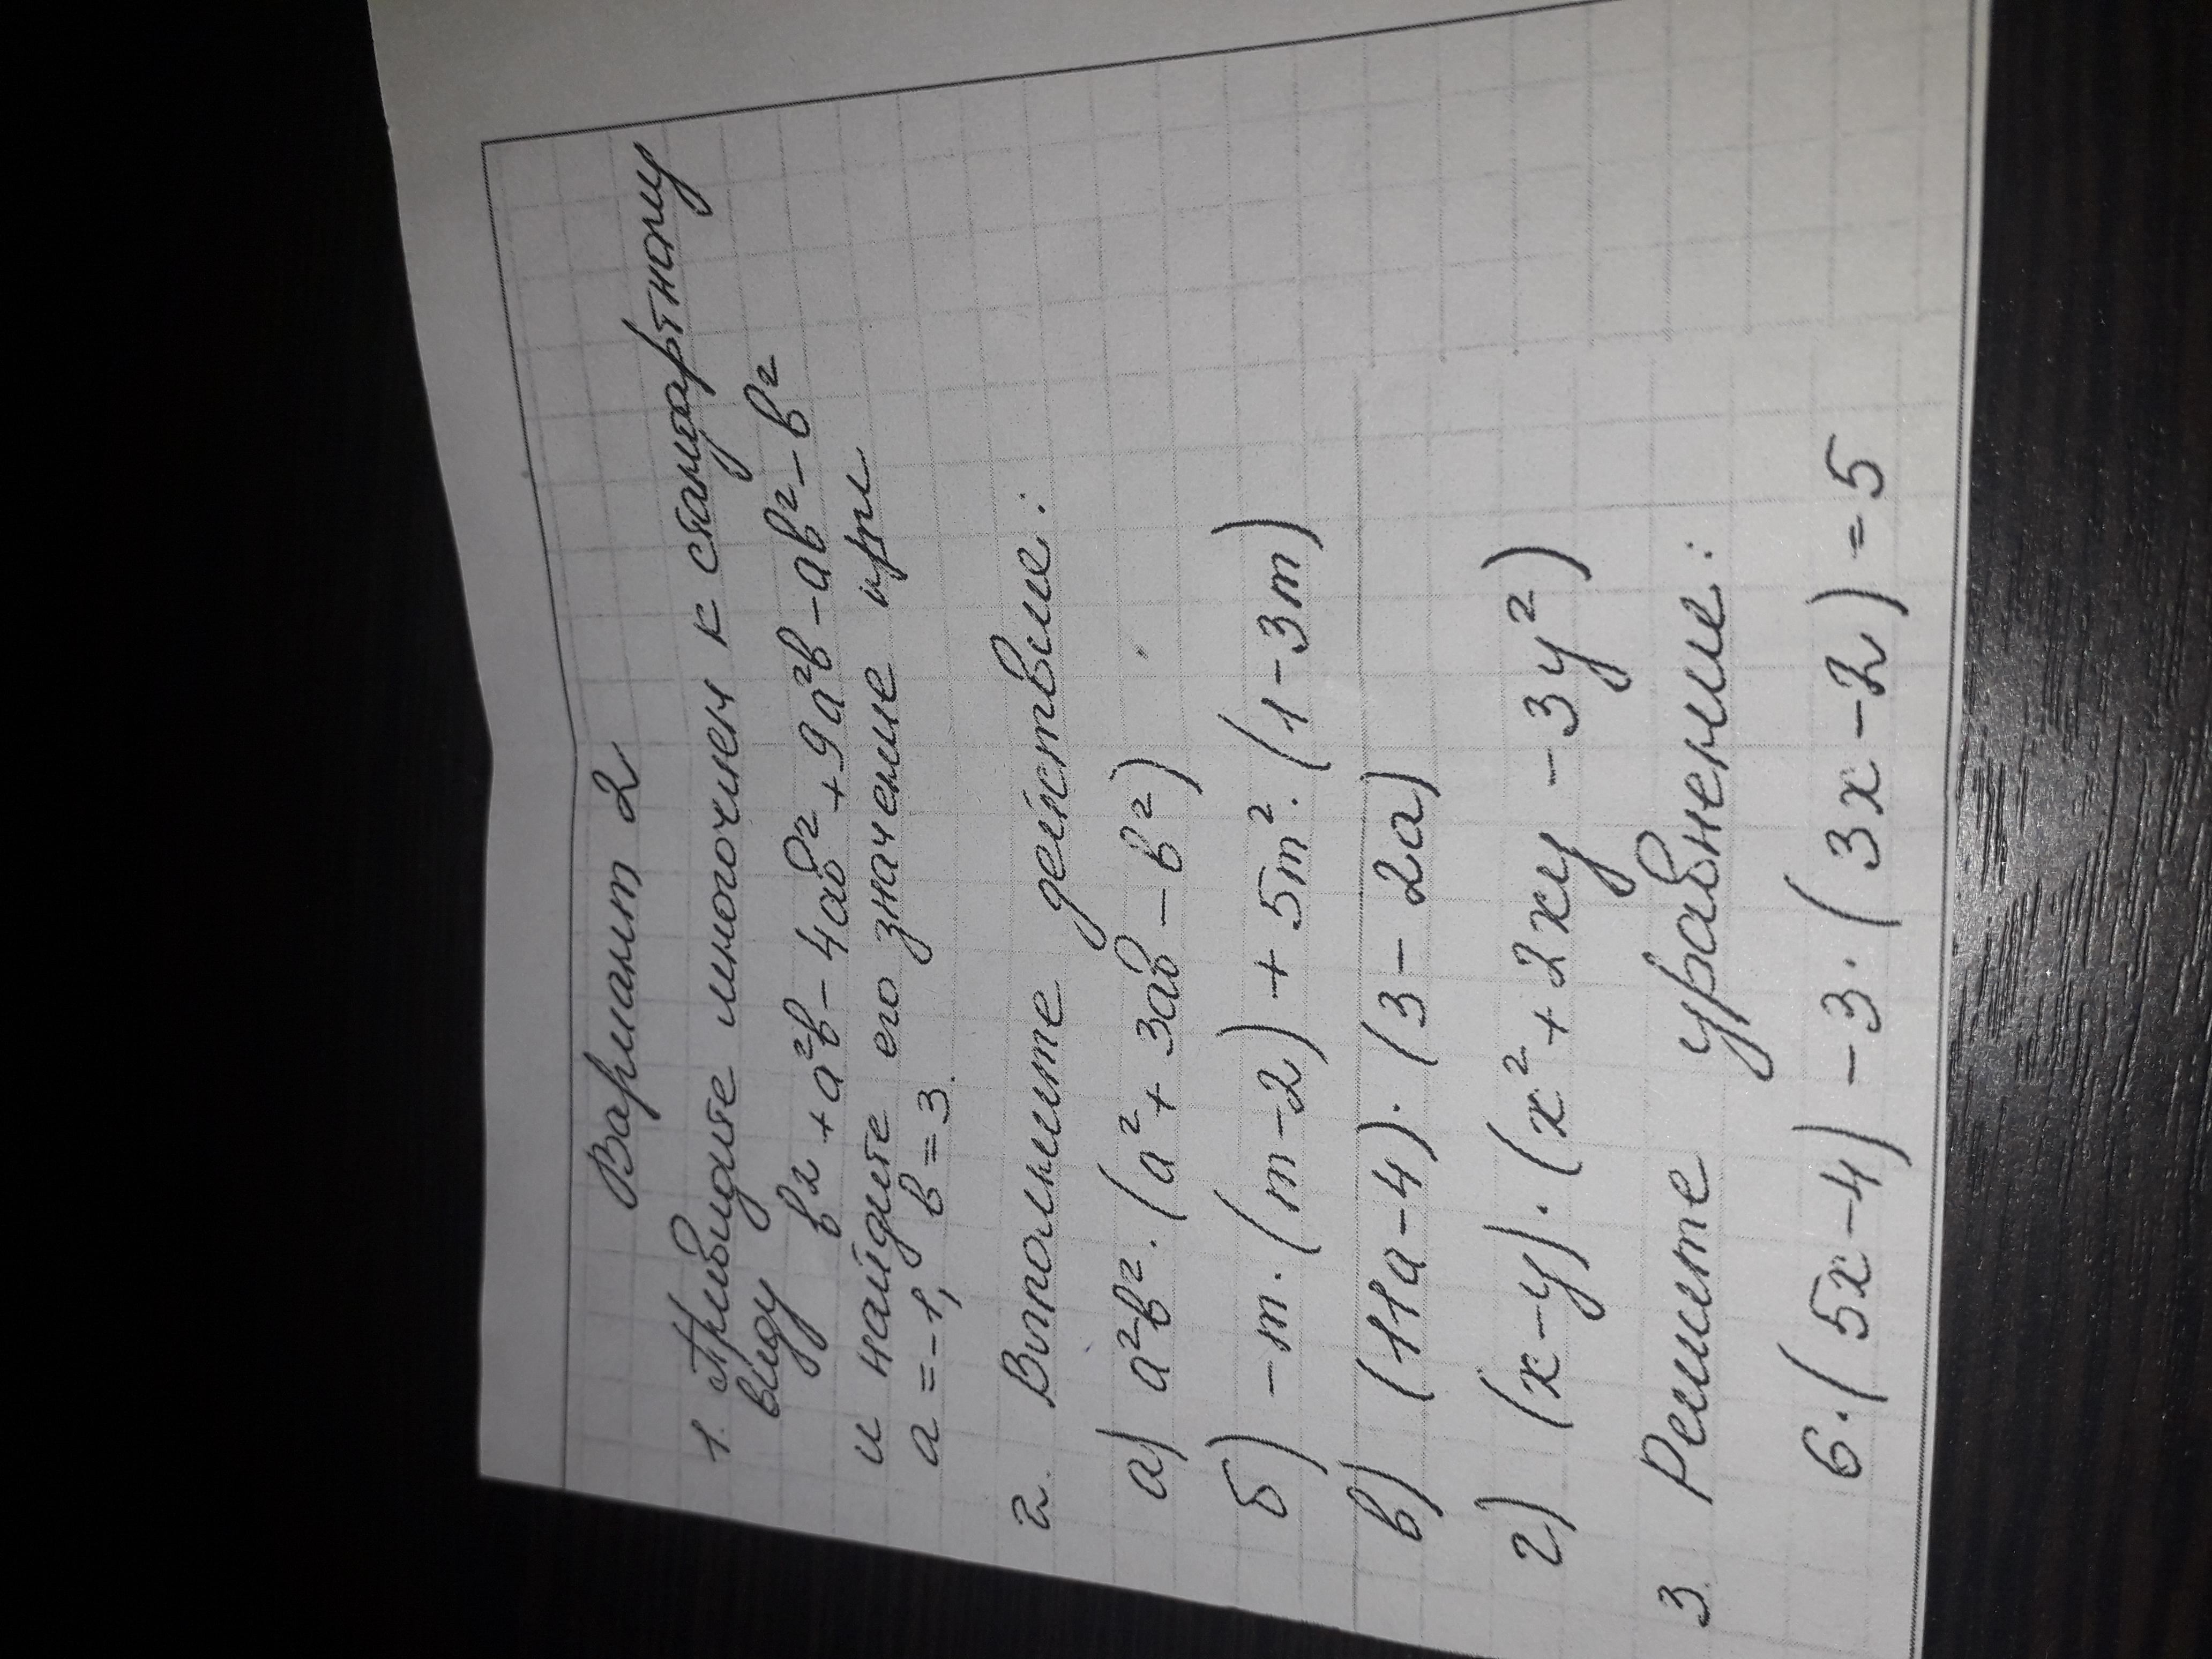 Вариант 2
1. Приведите многочлен к стандартному
виду
b² + a²b - 4ab² + 9a²b - ab² - b²
и найдите его значение при
a = -1, b = 3.
2. Выполните действие:
а) a²b² · (a² + 3ab - b²)
б) -m · (m-2) + 5m² · (1-3m)
в) (11a-4) · (3-2a)
г) (x-y) · (x² + 2xy - 3y²)
3. Решите уравнение:
6 · (5x-4) - 3 · (3x-2) = 5